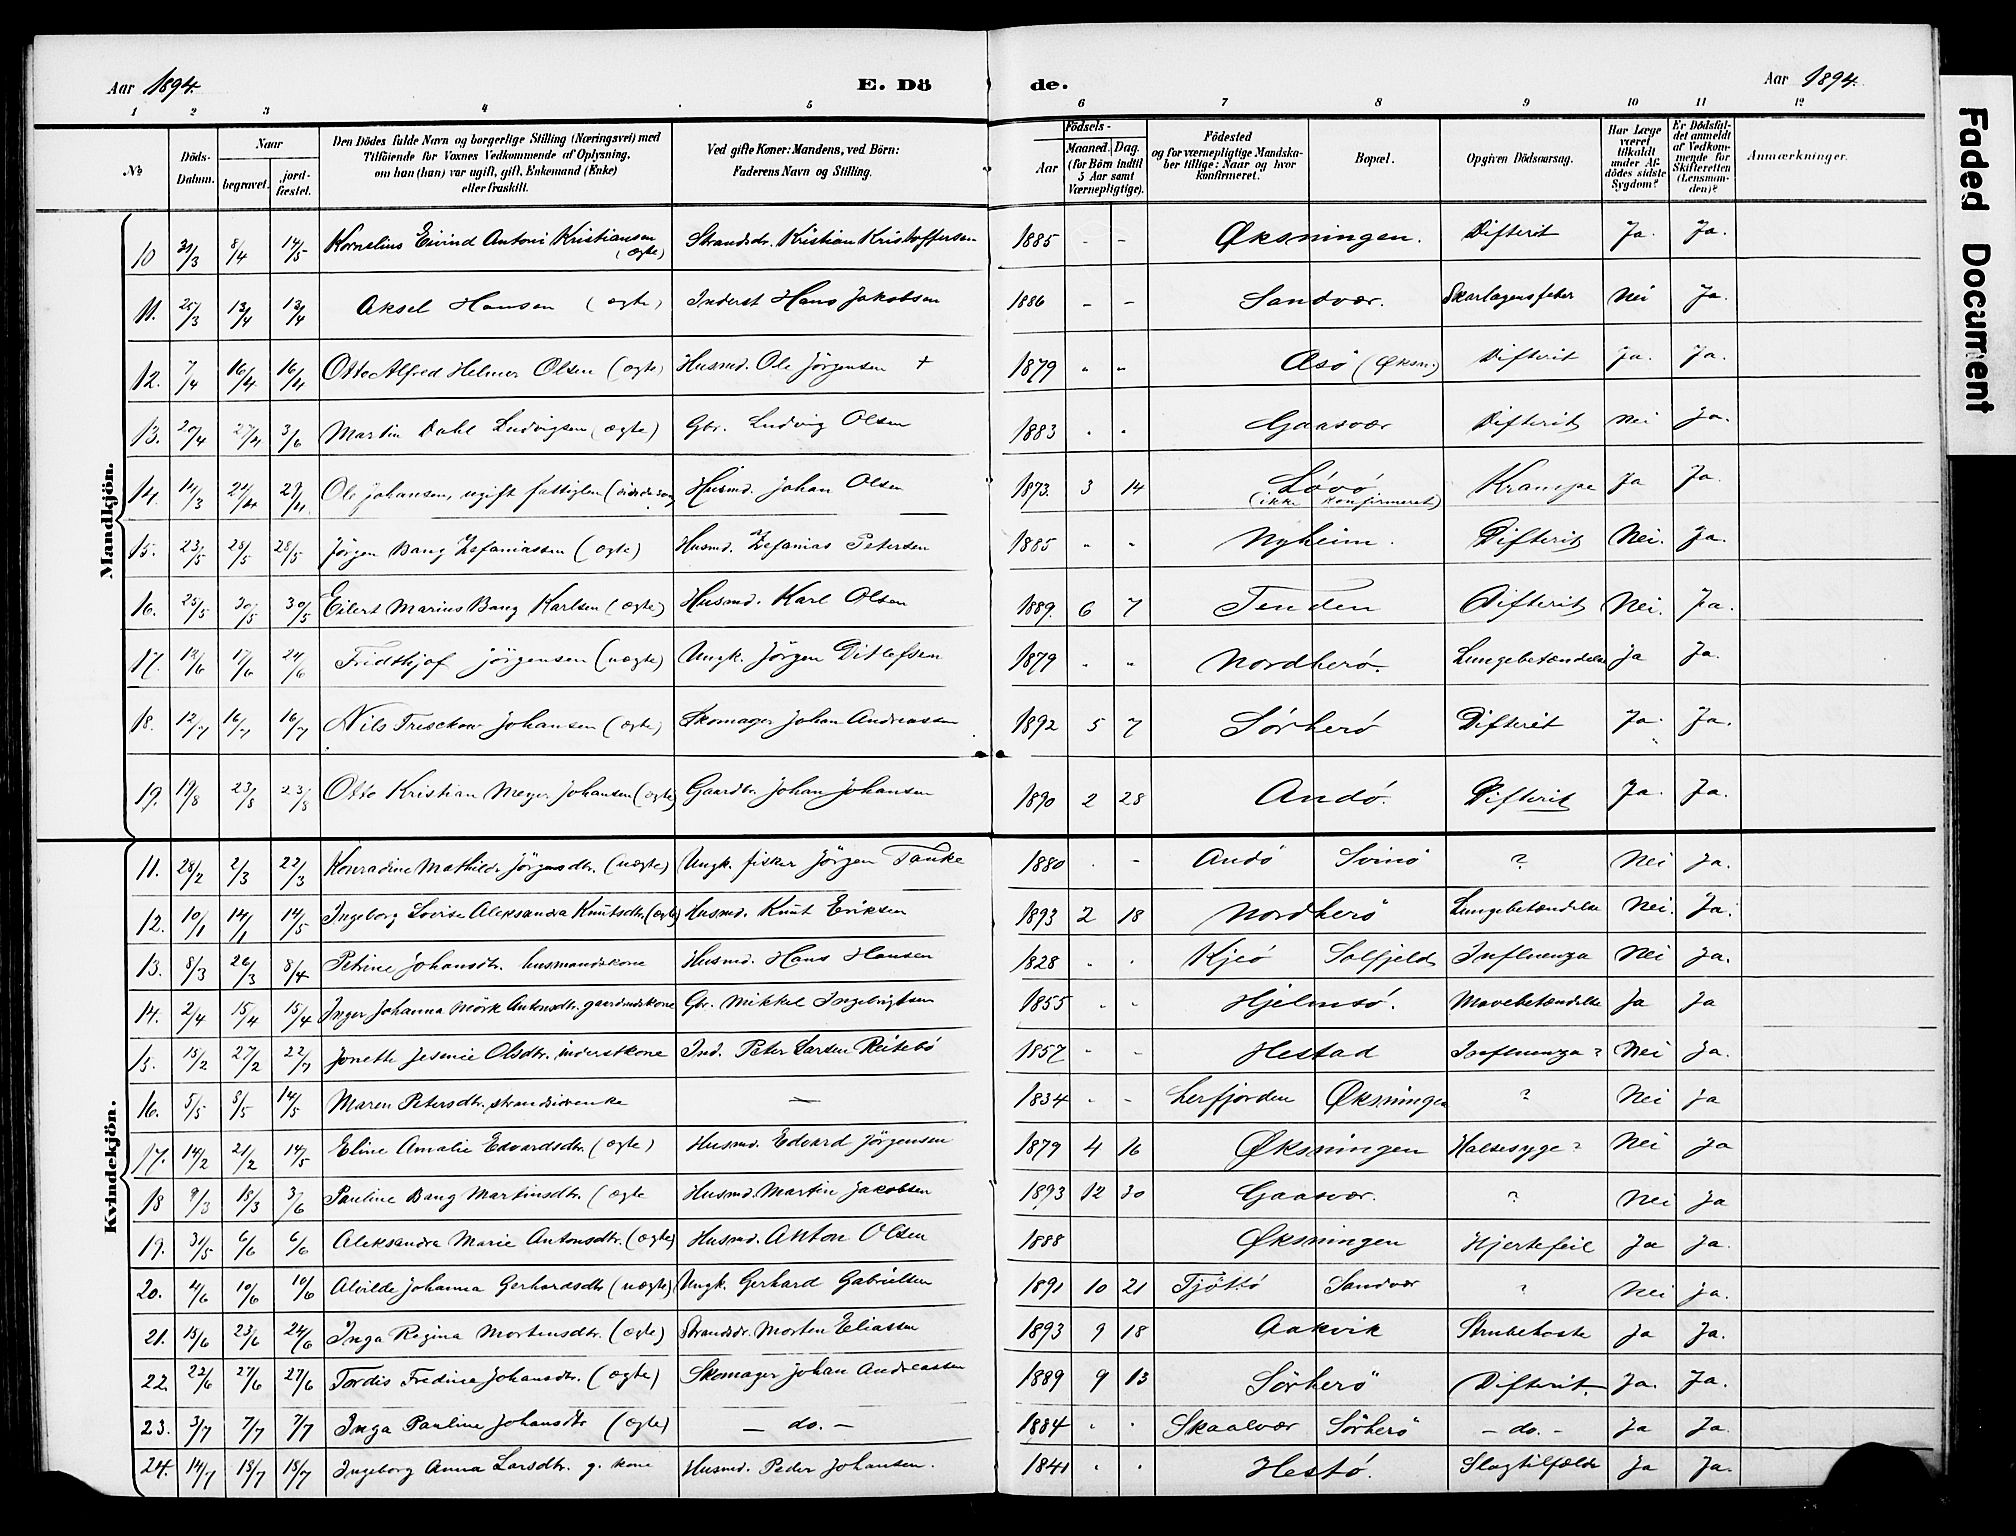 Aar 1894. E. Dö de. Aar 1894.
1 2 3 4 5 6 7 8 9 10 11 12
No Döds-Datum. Naar begravet. jord-fæstet. Den Dödes fulde Navn og borgerlige Stilling (Næringsvei) med Tilföiende for Voxnes Vedkommende af Oplysning, om han (hun) var ugift, gift, Enkemand (Enke) eller fraskilt. Ved gifte Koner: Mandens, ved Börn: Faderens Navn og Stilling. Födsels- Aar Maaned. Dag. (for Börn indtil 5 Aar samt Værnepligtige). Födested og for værnepligtige Mandska-ber tillige: Naar og hvor konfirmeret. Bopæl. Opgiven Dödsaarsag. Har Læge været tilkaldt under Af-dödes sidste Sygdom? Er Dödsfal-det anmeldt af Vedkom-mende for Skifteretten (Lensman-den)? Anmærkninger.
Mandkjön.
10 31/3 8/4 14/5 Kornelius Eivind Antoni Kristiansen (ægte) Strandsdr. Kristian Kristoffersen 1885 - - Øksningen. Difterit Ja. Ja.
11. 25/3 13/4 13/4 Aksel Hansen (ægte) Inderst Hans Jakobsen 1886 - - Sandvær. Skarlagensfeber Nei Ja.
12. 7/4 16/4 16/4 Otto Alfred Helmer Olsen (ægte) Husmd. Ole Jörgensen + 1879 " " Asö (Øksn.) Difterit Ja. Ja.
13. 20/4 27/4 3/6 Martin Dahl Ludvigsen (ægte) Gbr. Ludvig Olsen 1883 " " Gaasvær Difterit Nei Ja.
14. 14/3 24/4 29/4 Ole Johansen, ugift fattiglem Husmd. Johan Olsen 1873. 3 14 Lövö (ikke konfirmeret) Krampe Ja Ja.
15. 23/5 28/5 28/5 Jörgen Bang Zefaniassen (ægte) Husmd. Zefanias Petersen 1885 " " Nyheim. Difterit Nei. Ja.
16. 25/5 30/5 30/5 Eilert Marius Bang Karlsen (ægte) Husmd. Karl Olsen 1889. 6 7 Tenden Difterit Nei. Ja.
17. 13/6 17/6 24/6 Fridthjof Jörgensen (uægte) Ungk. Jörgen Ditlefsen 1879 " " Nordherö. Lungebetændelse Ja Ja.
18. 12/7 16/7 16/7 Nils Tresckow Johansen (ægte) Skomager Johan Andreassen 1892 5 7 Sörherö Difterit Ja. Ja.
19. 19/8 23/8 23/8 Otto Kristian Meyer Johansen (ægte) Gaardbr. Johan Johansen 1890 2 28 Andö. Difterit Ja. Ja.
Kvindekjön.
11. 28/2 2/3 22/3 Konradine Mathilde Jörgensdtr. (uægte) Ungk. fisker Jörgen Tanke 1880 - - Andö Svinö ? Nei Ja.
12. 10/1 14/1 14/5 Ingeborg Lovise Aleksandra Knutsdtr. (ægte) Husmd. Knut Eriksen 1893 2 18 Nordherö Lungebetændelse Nei. Ja.
13. 8/3 26/3 8/4 Petrine Johansdtr. husmandskone Husmd. Hans Hansen 1828 " " Kjeö Solfjeld Influenza Nei Ja.
14. 2/4 15/4 15/4 Inger Johanna Mörk Antonsdtr. gaardmdskone Gbr. Mikkel Ingebrigtsen 1855 " " Hjelmsö. Mavebetændelse Ja Ja
15. 15/2 27/2 22/7 Jonette Jesmie Olsdtr. inderstkone Ind. Peter Larsen Reitebö 1857 - - Hestad Influenza? Nei Ja.
16. 5/5 8/5 14/5 Maren Petersdtr. strandsidderenke — 1834 - - Lerfjorden Øksningen ? Nei Ja
17. 14/2 21/2 14/5 Eline Amalie Edvardsdtr. (ægte) Husmd. Edvard Jörgensen 1879 4 16 Øksningen Halsesyge? Nei Ja
18 9/3 18/3 3/6 Pauline Bang Martinsdtr. (ægte Husmd. Martin Jakobsen 1893 12 30 Gaasvær. ? Nei Ja
19. 31/5 6/6 6/6 Aleksandra Marie Antonsdtr. (ægte) Husmd. Anton Olsen 1888 Øksningen Hjertefeil Ja Ja.
20. 4/6 10/6 10/6 Alvilde Johanna Gerhardsdtr. (uægte) Ungk. Gerhard Gabrielsen 1891 10 21 Tjöttö Sandvær ? Nei Ja.
21. 15/6 23/6 24/6 Inga Regina Mortensdtr. (ægte) Strandsdr. Morten Eliassen 1893 9 18 Aakvik Strubehoste Ja Ja.
22. 22/6 27/6 27/6 Tordis Fredine Johansdtr. (ægte) Skomager Johan Andreassen 1889 9 13 Sörherö Difterit. Ja. Ja.
23. 3/7 7/7 7/7 Inga Pauline Johansdtr (ægte) — do. — 1884 " " Skaalvær Sörherö — do. — Ja Ja.
24. 14/7 18/7 18/7 Ingeborg Anna Larsdtr. g. kone Husmd. Peder Johansen. 1841 " " Hestö. Slagtilfælde Ja Ja.
Faded Document